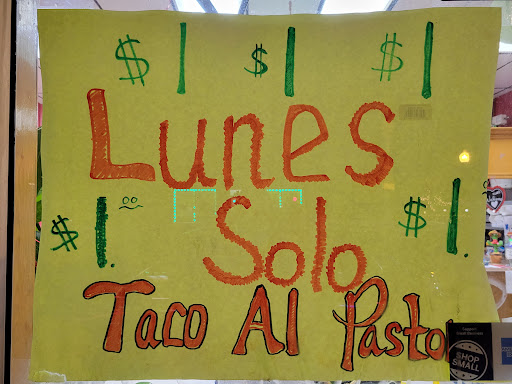 $1 $1 $1
Lunes
$1. Solo $1.
Taco Al Pasto
SHOP
SMALL